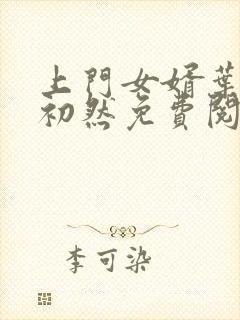 上門女婿葉
初然免費閱
李可染